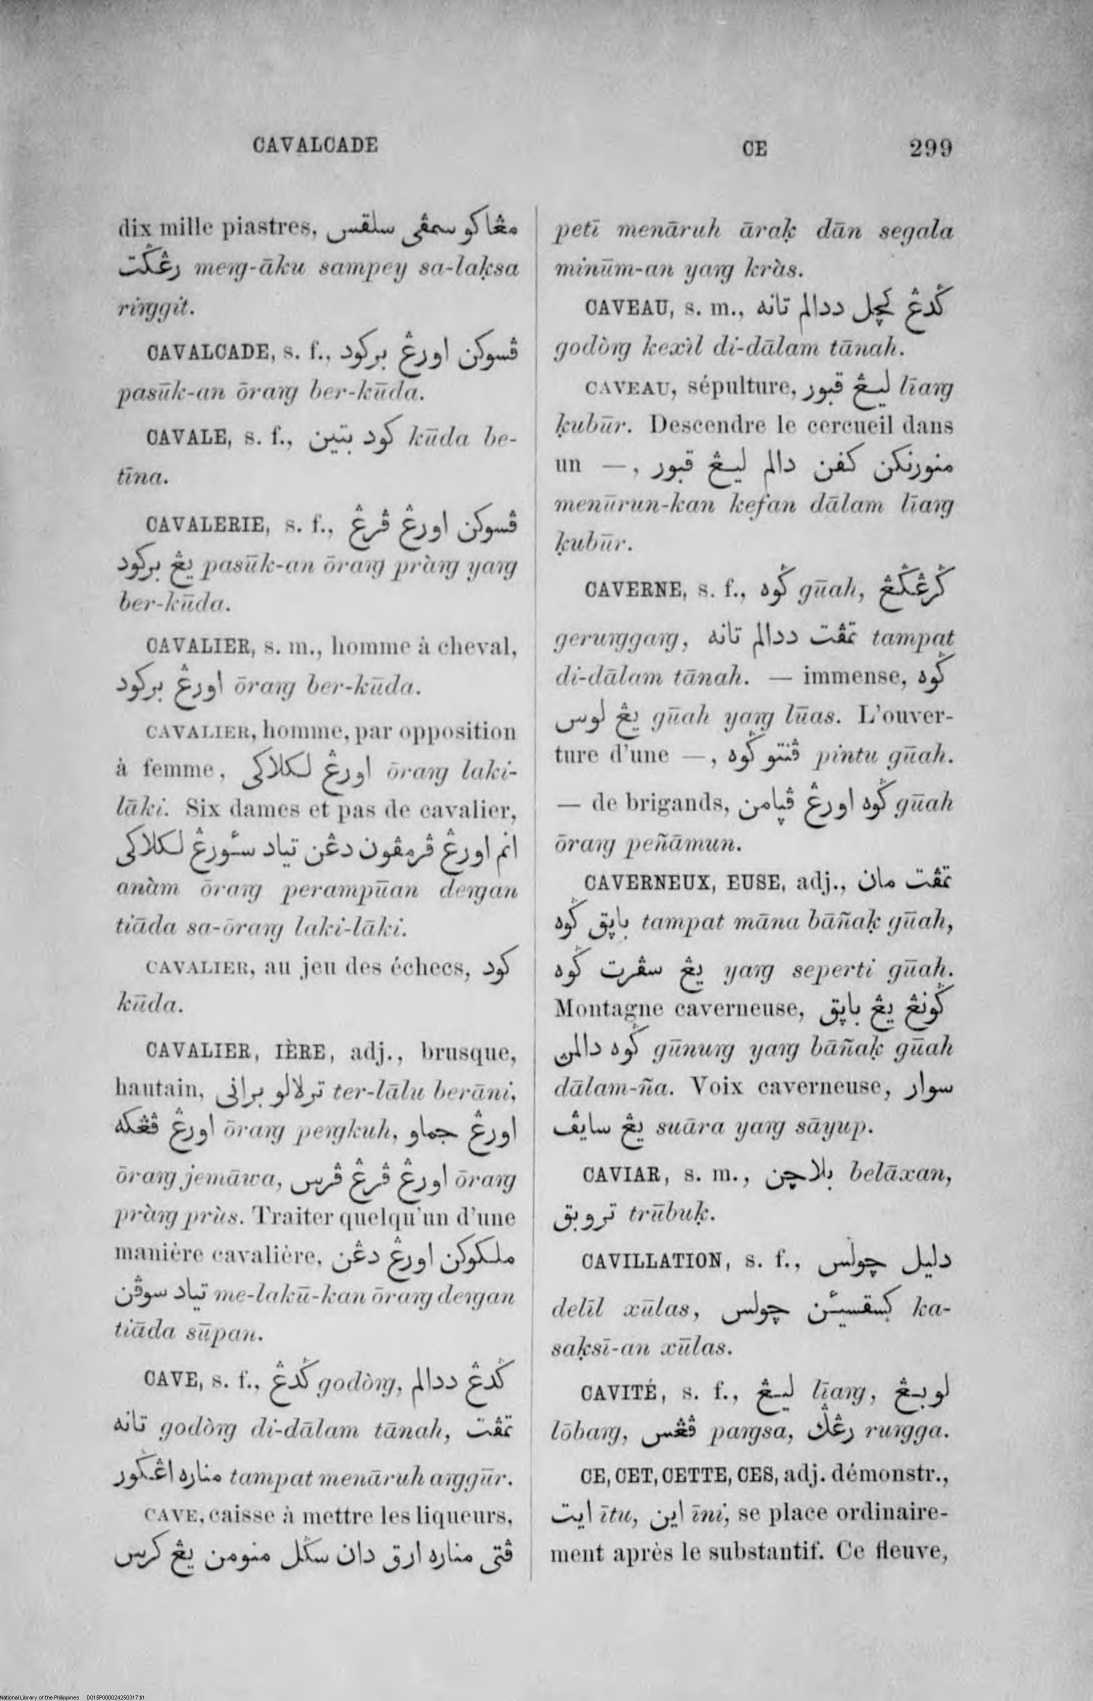 CAVALCADE
CE 299
dix mille piastres, مڠاكو سمڤي سلقس
رڠݢت meŋ-āku sampey sa-laḳsa
riŋggit.
CAVALCADE, s. f., ڤسوكن اورڠ بركود
pasūk-an ōraŋ ber-kūda.
CAVALE, s. f., كود بتين kūda be-
tīna.
CAVALERIE, s. f., ڤسوكن اورڠ ڤرڠ
يڠ بركود pasūk-an ōraŋ pràŋ yaŋ
ber-kūda.
CAVALIER, s. m., homme à cheval,
اورڠ بركود ōraŋ ber-kūda.
CAVALIER, homme, par opposition
à femme, اورڠ لكلاكي ōraŋ laki-
lāki. Six dames et pas de cavalier,
انم اورڠ ڤرمڤون دڠن تياد سئورڠ لكلاكي
anàm ōraŋ perampūan deŋan
tiāda sa-ōraŋ laki-lāki.
CAVALIER, au jeu des échecs, كود
kūda.
CAVALIER, IÈRE, adj., brusque,
hautain, ترلالو براني ter-lālu berāni,
اورڠ ڤڠكه ōraŋ peŋkuh, اورڠ جماو
ōraŋ jemāwa, اورڠ ڤرڠ ڤرس ōraŋ
pràŋ prùs. Traiter quelqu'un d'une
manière cavalière, ملكوكن اورڠ دڠن
تياد سوڤن me-lakū-kan ōraŋ deŋan
tiāda sūpan.
CAVE, s. f., ݢدڠ godòŋ, ݢدڠ ددالم
تانه godòŋ di-dālam tānah, تمڤت
مناره اڠݢور tampat menāruh aŋgūr.
CAVE, caisse à mettre les liqueurs,
ڤتي مناره ارق دان سݢل منومن يڠ كرس
petī menāruh āraḳ dān segala
minūm-an yaŋ kràs.
CAVEAU, s. m., ݢدڠ كچل ددالم تانه
godòŋ kexìl di-dālam tānah.
CAVEAU, sépulture, ليڠ قبور līaŋ
ḳubūr. Descendre le cercueil dans
un —, منورنكن كفن دالم ليڠ قبور
menūrun-kan kefan dālam līaŋ
ḳubūr.
CAVERNE, s. f., ݢوه gūah, ݢرڠݢڠ
geruŋgaŋ, تمڤت ددالم تانه tampat
di-dālam tānah. — immense, ݢوه
يڠ لوس gūah yaŋ lūas. L'ouver-
ture d'une —, ڤنتو ݢوه pintu gūah.
— de brigands, ݢوه اورڠ ڤپامن gūah
ōraŋ peñāmun.
CAVERNEUX, EUSE, adj., تمڤت مان
باپق ݢوه tampat māna bāñaḳ gūah,
يڠ سڤرت ݢوه yaŋ seperti gūah.
Montagne caverneuse, ݢونڠ يڠ باپق
ݢوه دالمن gūnuŋ yaŋ bāñaḳ gūah
dālam-ña. Voix caverneuse, سوار
يڠ سايڤ suāra yaŋ sāyup.
CAVIAR, s. m., بلاچن belāxan,
تروبق trūbuḳ.
CAVILLATION, s. f., دليل چولس
delīl xūlas, كسقسيئن چولس ka-
saḳsī-an xūlas.
CAVITÉ, s. f., ليڠ līaŋ, لوبڠ
lōbaŋ, ڤڠس paŋsa, رڠݢ ruŋga.
CE, CET, CETTE, CES, adj. démonstr.,
ايت ītu, اين īni, se place ordinaire-
ment après le substantif. Ce fleuve,
National Library of the Philippines